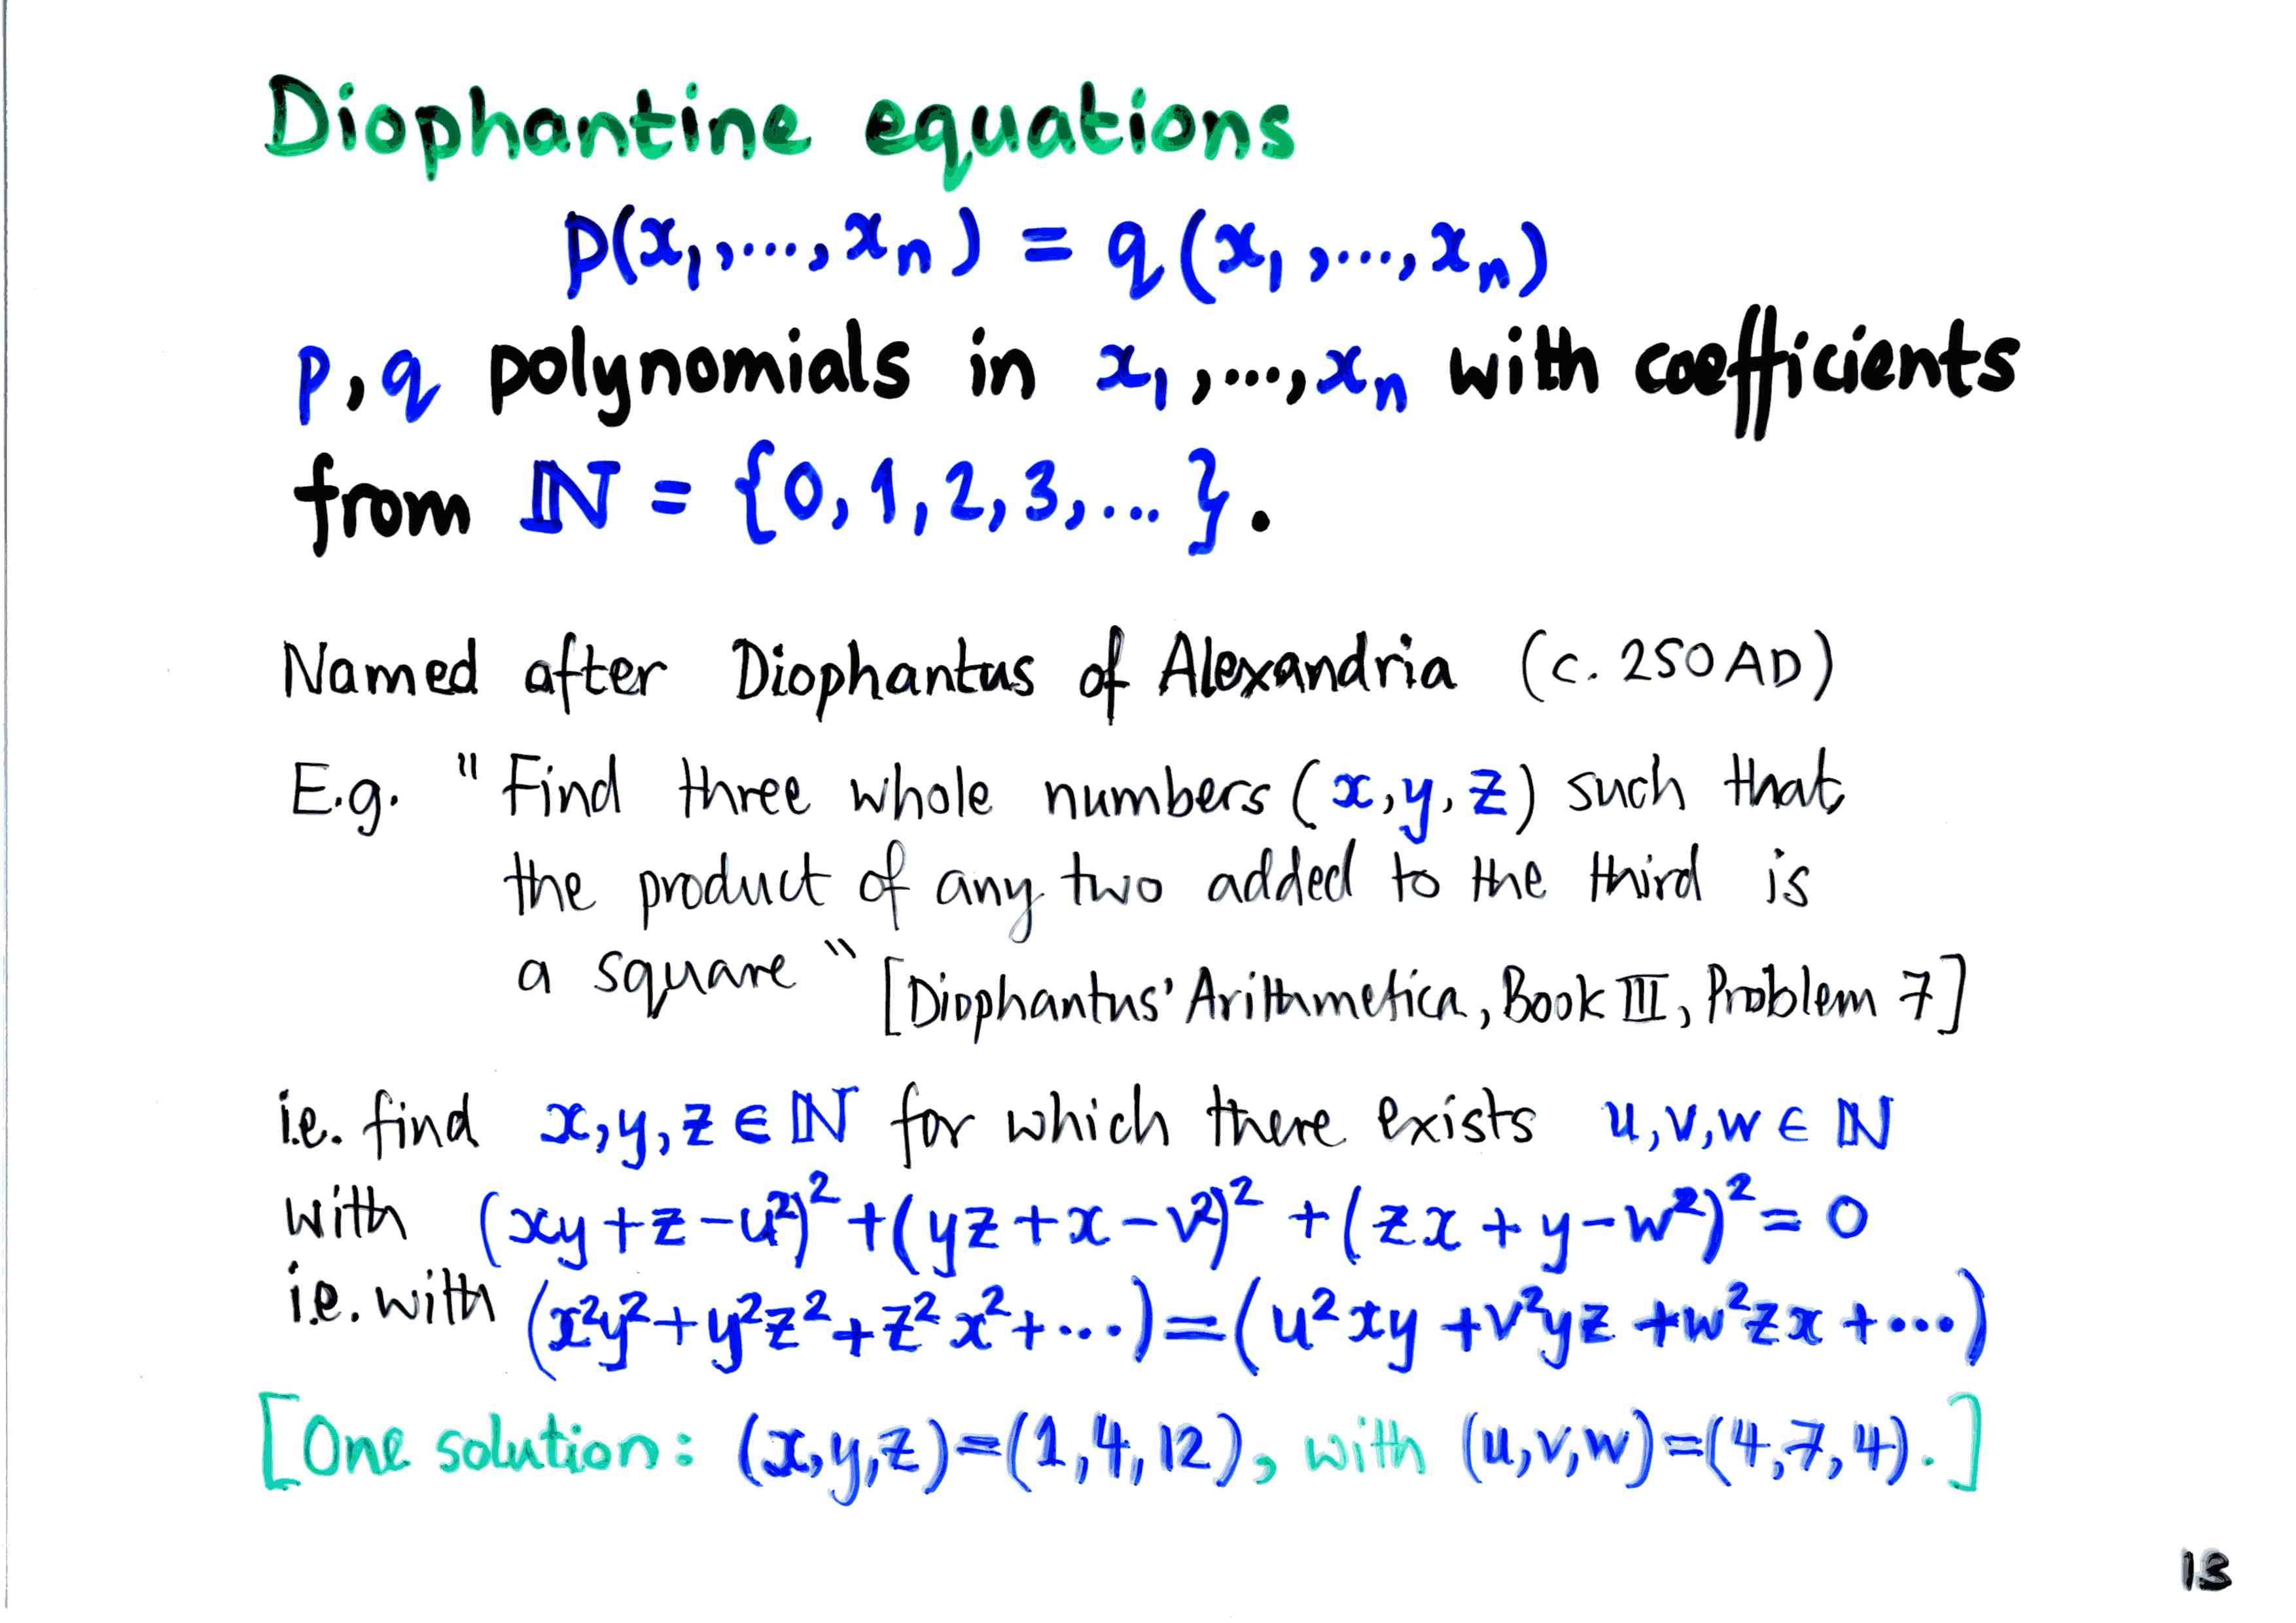 Diophantine equations
p(x₁,...,xₙ) = q(x₁,...,xₙ)
p,q polynomials in x₁,...,xₙ with coefficients
from ℕ = {0,1,2,3,...}.
Named after Diophantus of Alexandria (c. 250AD)
E.g. "Find three whole numbers (x,y,z) such that
the product of any two added to the third is
a square" [Diophantus' Arithmetica, Book III, Problem 7]
i.e. find x,y,z ∈ ℕ for which there exists u,v,w ∈ ℕ
with (xy+z-u²)² + (yz+x-v²)² + (zx+y-w²)² = 0
i.e. with (x²y²+y²z²+z²x²+...) = (u²xy+v²yz+w²zx+...)
[One solution: (x,y,z)=(1,4,12), with (u,v,w)=(4,7,4).]
13